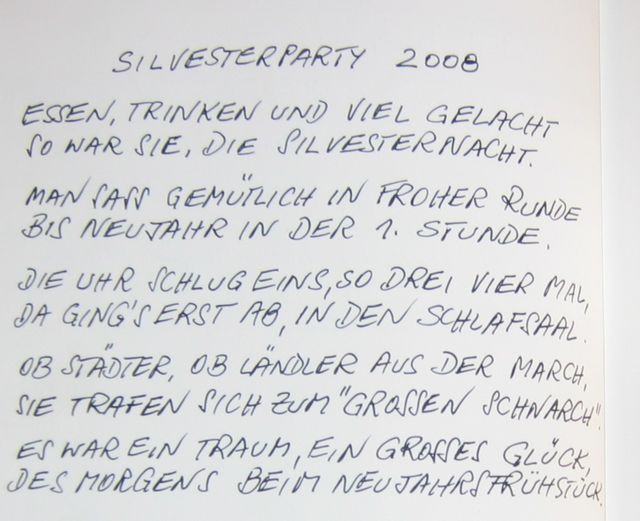 SILVESTERPARTY 2008
ESSEN, TRINKEN UND VIEL GELACHT
SO WAR SIE, DIE SILVESTERNACHT.
MAN SASS GEMÜTLICH IN FROHER RUNDE
BIS NEUJAHR IN DER 1. STUNDE.
DIE UHR SCHLUG EINS, SO DREI VIER MAL,
DA GING'S ERST AB, IN DEN SCHLAFSAAL.
OB STÄDTER, OB LÄNDLER AUS DER MARCH,
SIE TRAFEN SICH ZUM "GROSSEN SCHNARCH".
ES WAR EIN TRAUM, EIN GROSSES GLÜCK,
DES MORGENS BEIM NEUJAHRSFRÜHSTÜCK.